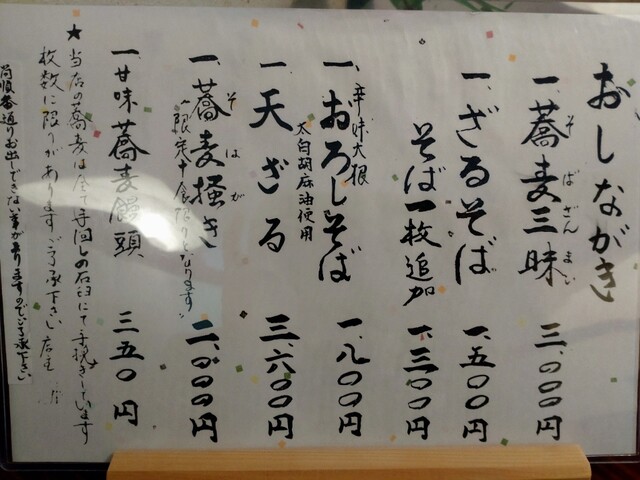 おしながき
一、蕎麦三昧 三、〇〇〇円
そばざんまい
一、ざるそば 一、五〇〇円
そば一枚追加 一、三〇〇円
辛味大根
一、おろしそば 一、八〇〇円
太白胡麻油使用
一、天ざる 三、六〇〇円
一、蕎麦掻き 二、〇〇〇円
そばがき
限定十食限りとなります
一、甘味蕎麦饅頭 三五〇円
★当店の蕎麦は全て手回しの石臼にて手挽きしています
枚数に限りがありますご了承下さい 店主
尚順番通りお出しできない事が有りますのでご了承下さい